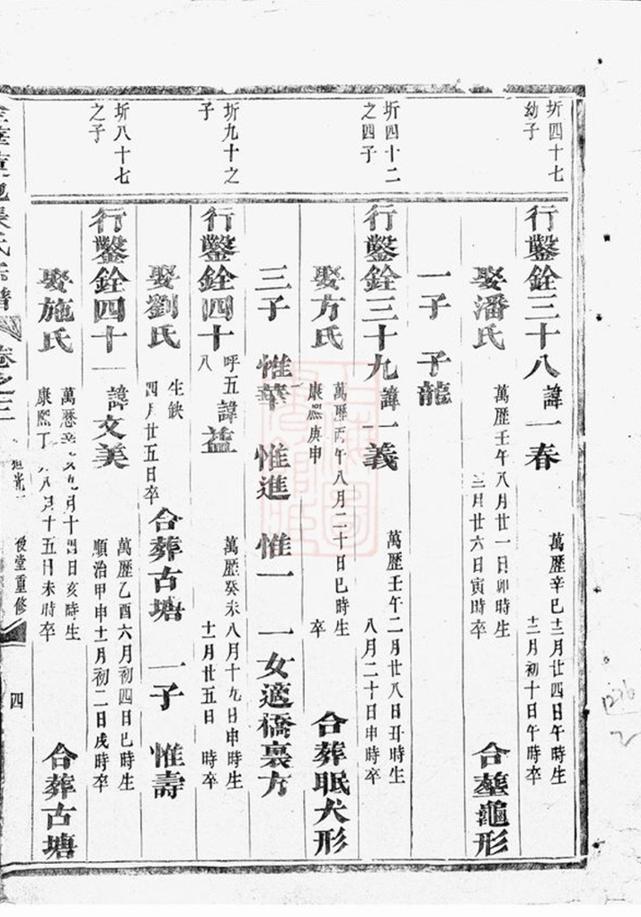 圻四十七
幼子
行鑿銓三十八 諱一春
萬歷辛巳十二月廿四日午時生
十二月初十日午時卒
娶潘氏
萬歷壬午八月廿一日卯時生
三月廿六日寅時卒
合塟龜形
一子 子龍
圻四十二
之四子
行鑿銓三十九 諱一義
萬歷壬午二月廿八日丑時生
八月二十日申時卒
娶方氏
萬歷丙午八月二十日巳時生
康熙庚申 卒
合葬眠犬形
三子 惟華 惟進 惟一 一女適橋裏方
圻九十之
子
行鑿銓四十
呼五
八
諱益
萬歷癸未八月十九日申時生
十一月廿五日 時卒
娶劉氏
生缺
四月廿五日卒
合葬古塘 一子 惟壽
圻八十七
之子
行鑿銓四十一 諱文美
萬歷乙酉六月初四日巳時生
順治甲申十一月初二日戌時卒
娶施氏
萬歷辛 九月十四日亥時生
康熙丁 八月十五日未時卒
合葬古塘
氏宗譜 卷之三 道光 重修 四